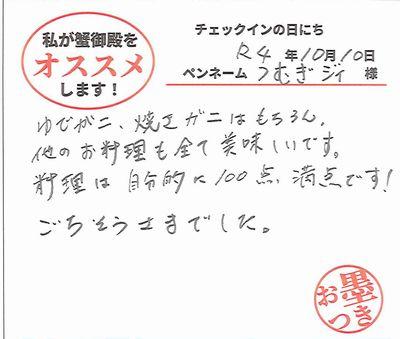 私が蟹御殿を
オススメ
します！
チェックインの日にち
R4 年10月10日
ペンネーム つむぎジイ 様
ゆでガニ、焼きガニはもちろん、
他のお料理も全て美味しいです。
料理は自分的に100点満点です!
ごちそうさまでした。
お墨つき